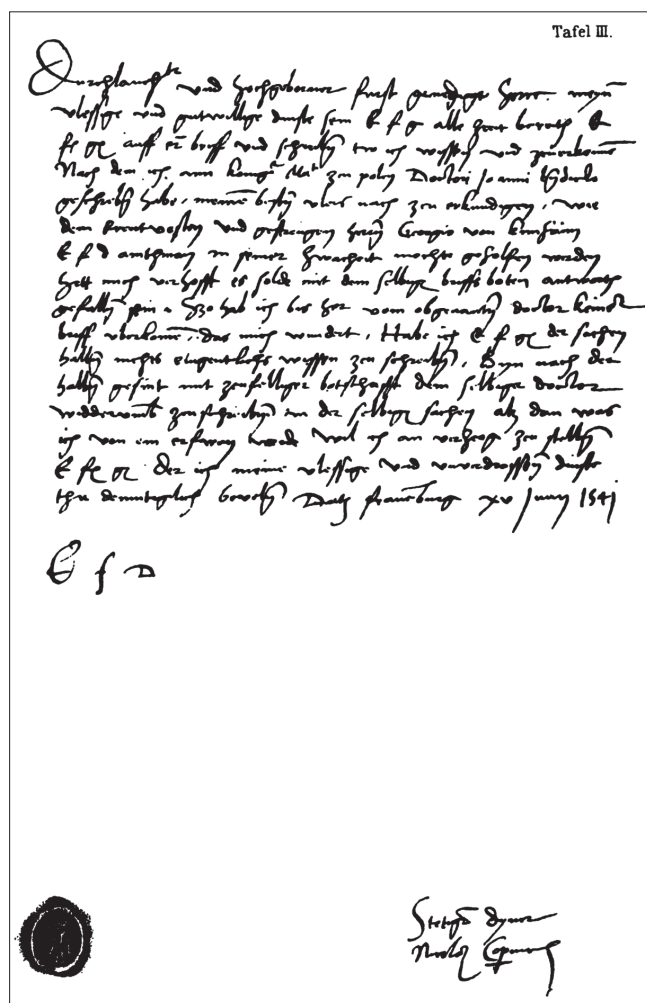 Tafel III.
Durchlauchter vnd hochgeborner furst genediger herre. meyn
vlessige vnd gutwillige dinste sein E f g alle zceit bereith E
fe ge auff er brieff vnd schreiben thu ich wyssen vnd zuerkennen
Nach dem ich an königr Mat zcu polen Doctori Joanni
geschrieben habe, meinen besten vleis nach zcu erkundigen, wie
dem Erentvesten vnd gestrengen herrn Georgio von kunheim
E f d amthman in seiner swacheit mochte geholfen werden
hett mich verhofft es solde mit dem selbigen briffs boten antworth
gefallen sein. Szo hab ich bis her vom obgenanten doctor keinen
briff vberkomen, das mich wundert, Habe ich E f ge der sachen
halben nichts eigentlichs wyssen zcu schreiben, Byn noch der
halben gesint mit zcufelliger botschafft dem selbigen doctor
widderumb zcuschreiben in der selbigen sachen alz dan was
ich von im erfaren werde wil ich an verzog zcu stellen
E fe ge Der ich meine vlessige vnd vnverdrossen dinste
thu demutiglich bevelen Datum frauenburg xv Junij 1541
E f D
Stetiger dyner
Nicolaus Copernicus